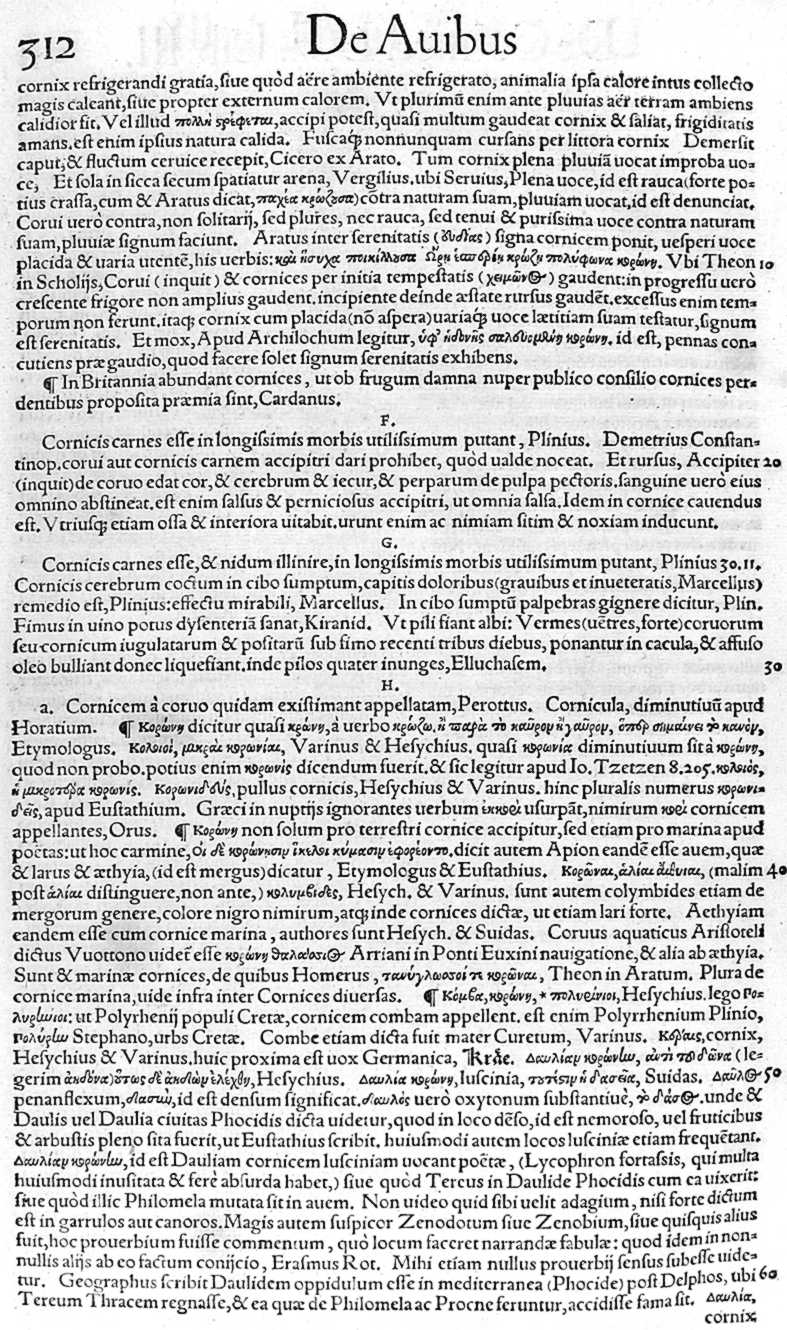 312 De Auibus
cornix refrigerandi gratia, siue quòd aëre ambiente refrigerato, animalia ipsa calore intus collecto
magis caleant, siue propter externum calorem. Vt plurimũ enim ante pluuias aër terram ambiens
calidior fit. Vel illud πολλὴ στρέφεται, accipi potest, quasi multum gaudeat cornix & saliat, frigiditatis
amans. est enim ipsius natura calida. Fuscaq; nonnunquam cursans per littora cornix Demersit
caput, & fluctum ceruice recepit, Cicero ex Arato. Tum cornix plena pluuiã uocat improba uo-
ce, Et sola in sicca secum spatiatur arena, Vergilius. ubi Seruius, Plena uoce, id est rauca (forte po-
tius crassa, cum & Aratus dicat, παχέα κρώζουσα) cõtra naturam suam, pluuiam uocat, id est denunciat.
Corui uerò contra, non solitarij, sed plures, nec rauca, sed tenui & purissima uoce contra naturam
suam, pluuiæ signum faciunt. Aratus inter serenitatis (εὐδίας) signa cornicem ponit, uesperi uoce
placida & uaria utentẽ, his uerbis: καὶ ἥσυχα ποικίλλουσα Ὥρῃ ἑσπερίῃ κρώζῃ πολύφωνα κορώνη. Vbi Theon 10
in Scholijs, Corui (inquit) & cornices per initia tempestatis (χειμῶνος) gaudent: in progressu uerò
crescente frigore non amplius gaudent. incipiente deinde æstate rursus gaudẽt. excessus enim tem-
porum non ferunt. itaq; cornix cum placida (nõ aspera) uariaq; uoce lætitiam suam testatur, signum
est serenitatis. Et mox, Apud Archilochum legitur, ὑφ᾽ ἡδονῆς σαλευομένη κορώνη. id est, pennas con-
cutiens præ gaudio, quod facere solet signum serenitatis exhibens.
¶ In Britannia abundant cornices, ut ob frugum damna nuper publico consilio cornices per-
dentibus proposita præmia sint, Cardanus.
F.
Cornicis carnes esse in longissimis morbis utilissimum putant, Plinius. Demetrius Constan-
tinop. corui aut cornicis carnem accipitri dari prohibet, quòd ualde noceat. Et rursus, Accipiter 20
(inquit) de coruo edat cor, & cerebrum & iecur, & perparum de pulpa pectoris. sanguine uerò eius
omnino abstineat. est enim salsus & perniciosus accipitri, ut omnia salsa. Idem in cornice cauendus
est. Vtriusq; etiam ossa & interiora uitabit. urunt enim ac nimiam sitim & noxiam inducunt.
G.
Cornicis carnes esse, & nidum illinire, in longissimis morbis utilissimum putant, Plinius 30.11.
Cornicis cerebrum coctum in cibo sumptum, capitis doloribus (grauibus et inueteratis, Marcellus)
remedio est, Plinius: effectu mirabili, Marcellus. In cibo sumptũ palpebras gignere dicitur, Plin.
Fimus in uino potus dysenteriã sanat, Kiranid. Vt pili fiant albi: Vermes (uẽtres, forte) coruorum
seu cornicum iugulatarum & positarũ sub fimo recenti tribus diebus, ponantur in cacula, & affuso
oleo bulliant donec liquefiant. inde pilos quater inunges, Elluchasem. 30
H.
a. Cornicem à coruo quidam existimant appellatam, Perottus. Cornicula, diminutiuũ apud
Horatium. ¶ Κορώνη dicitur quasi κρώνη, à uerbo κρώζω. ἢ παρὰ τὸ καῦρον ἢ γαῦρον, ὅπερ σημαίνει τὸ κακόν,
Etymologus. Κολοιοί, μικραὶ κορωνίαι, Varinus & Hesychius. quasi κορωνία diminutiuum sit à κορώνη,
quod non probo. potius enim κορωνὶς dicendum fuerit. & sic legitur apud Io. Tzetzen 8.205. κολοιὸς,
ἡ μικροτέρα κορωνίς. Κορωνιδεύς, pullus cornicis, Hesychius & Varinus. hinc pluralis numerus κορωνι-
δεῖς, apud Eustathium. Græci in nuptijs ignorantes uerbum ἐκκορεῖ usurpãt, nimirum κορεῖ cornicem
appellantes, Orus. ¶ Κορώνη non solum pro terrestri cornice accipitur, sed etiam pro marina apud
poëtas: ut hoc carmine, Οἱ δὲ κορώνῃσιν ἴκελοι κύμασιν ἐφορέοντο. dicit autem Apion eandẽ esse auem, quæ
& larus & æthyia, (id est mergus) dicatur, Etymologus & Eustathius. Κορῶναι, ἁλίαι αἴθυιαι, (malim 40
post ἁλίαι distinguere, non ante,) κολυμβίδες, Hesych. & Varinus. sunt autem colymbides etiam de
mergorum genere, colore nigro nimirum, atq; inde cornices dictæ, ut etiam lari forte. Aethyiam
eandem esse cum cornice marina, authores sunt Hesych. & Suidas. Coruus aquaticus Aristoteli
dictus Vuottono uidet̃ esse κορώνη θαλάσσιος Arriani in Ponti Euxini nauigatione, & alia ab æthyia.
Sunt & marinæ cornices, de quibus Homerus, τανύγλωσσοί τε κορῶναι, Theon in Aratum. Plura de
cornice marina, uide infra inter Cornices diuersas. ¶ Κόμβα, κορώνη, * πολυρήνιοι, Hesychius. lego Πο-
λυρρήνιοι: ut Polyrhenij populi Cretæ, cornicem combam appellent. est enim Polyrrhenium Plinio,
Πολύρρην Stephano, urbs Cretæ. Combe etiam dicta fuit mater Curetum, Varinus. cornix,
Hesychius & Varinus. huic proxima est uox Germanica, Kräe. Δαυλίαν κορώνην, ἀντὶ τοῦ ἀηδόνα (le-
gerim ἀηδόνα) οὕτως δὲ ἀηδὼν ἐλέχθη, Hesychius. Δαυλία κορώνη, luscinia, τουτέστιν ἡ δασεῖα, Suidas. Δαῦλος 50
penanflexum, δασὺ, id est densum significat. δαυλὸς uerò oxytonum substantiuè, τὸ δάσος. unde &
Daulis uel Daulia ciuitas Phocidis dicta uidetur, quod in loco dẽso, id est nemoroso, uel fruticibus
& arbustis pleno sita fuerit, ut Eustathius scribit. huiusmodi autem locos lusciniæ etiam frequẽtant.
Δαυλίαν κορώνην, id est Dauliam cornicem lusciniam uocant poëtæ, (Lycophron fortassis, qui multa
huiusmodi inusitata & ferè absurda habet,) siue quòd Tereus in Daulide Phocidis cum ea uixerit:
siue quòd illic Philomela mutata sit in auem. Non uideo quid sibi uelit adagium, nisi forte dictum
est in garrulos aut canoros. Magis autem suspicor Zenodotum siue Zenobium, siue quisquis alius
fuit, hoc prouerbium fuisse commentum, quò locum faceret narrandæ fabulæ: quod idem in non-
nullis alijs ab eo factum conijcio, Erasmus Rot. Mihi etiam nullus prouerbij sensus subesse uide-
tur. Geographus scribit Daulidem oppidulum esse in mediterranea (Phocide) post Delphos, ubi 60
Tereum Thracem regnasse, & ea quæ de Philomela ac Procne feruntur, accidisse fama sit. Δαυλία,
cornix